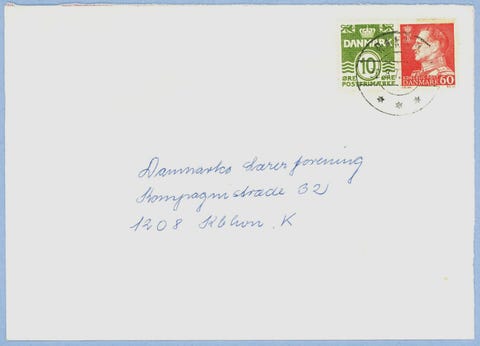 DANMARK
10
ØRE ØRE
POSTFRIMÆRKE
DANMARK 60
Danmarks Lærerforening
Kompagnistræde 32
1208 Kbhvn. K